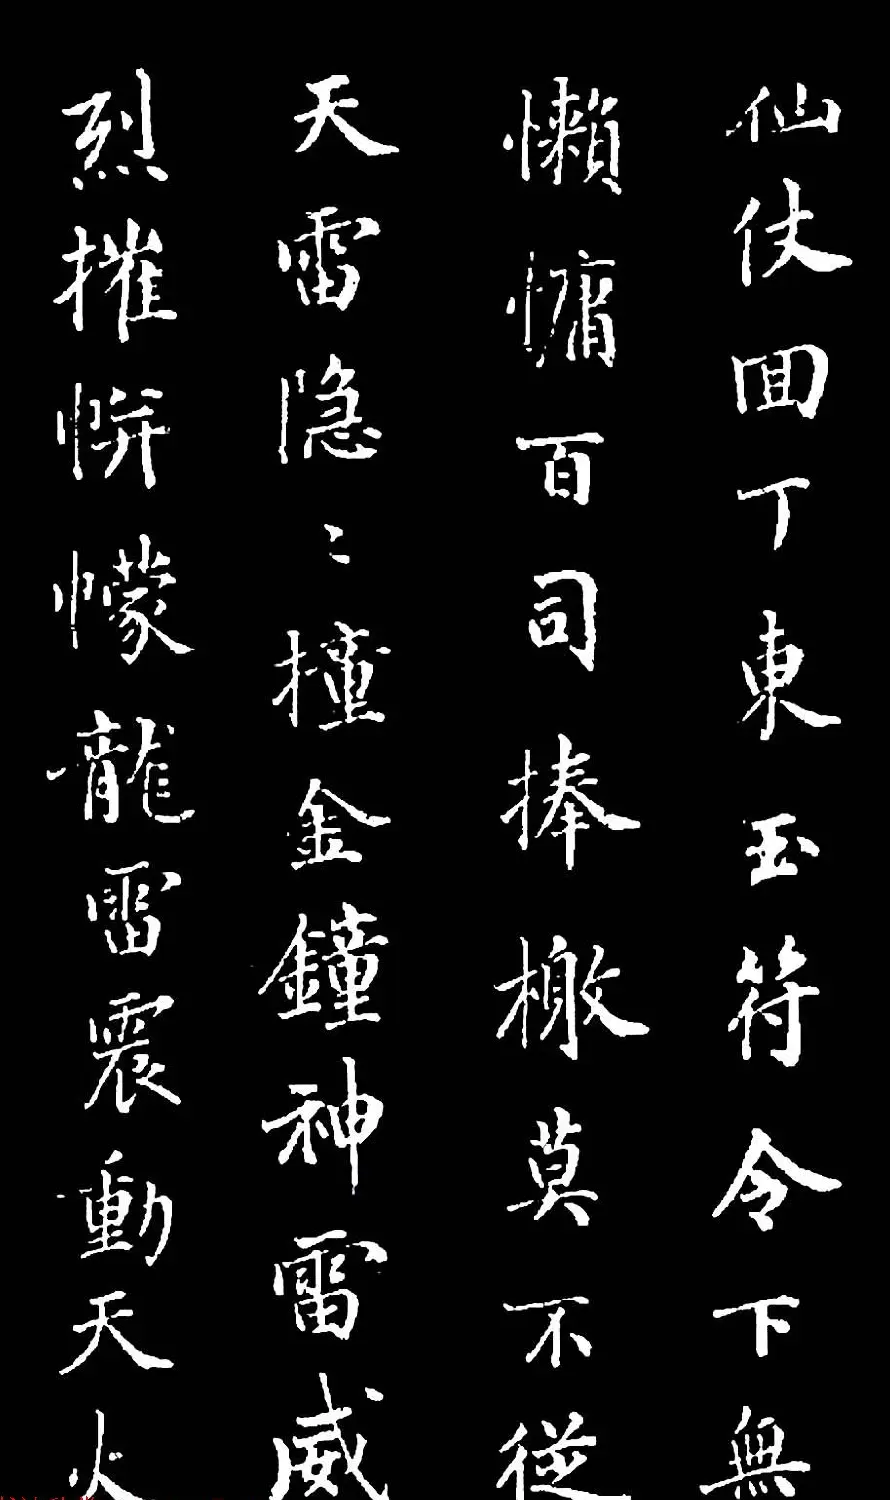 仙仗囬丁東玉符令下無
懶慵百司捧檄莫不從
天雷隐〻撞金鐘神雷威
烈摧帡幪龍雷震動天火